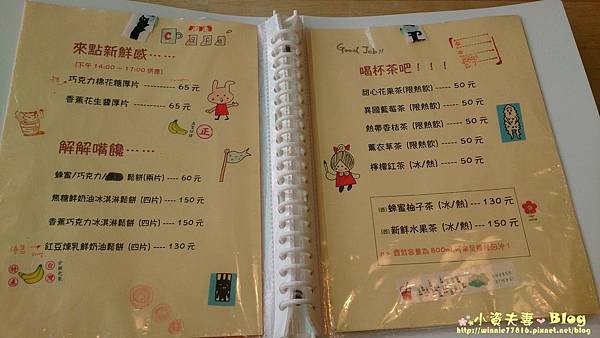 來點新鮮感······
(下午 14:00 ~ 17:00 供應)
巧克力棉花糖厚片 ---------- 65 元
香蕉花生醬厚片 ---------- 65 元
正
解解嘴饞·····
蜂蜜/巧克力/ 鬆餅(兩片) ---- 60 元
焦糖鮮奶油冰淇淋鬆餅 (四片) ---- 150 元
香蕉巧克力冰淇淋鬆餅 (四片) ---- 150 元
紅豆煉乳鮮奶油鬆餅 (四片) ---- 130 元
Good Job!!
喝杯茶吧！！！
甜心花果茶(限熱飲) ---- 50 元
異國藍莓茶 (限熱飲) ---- 50 元
熱帶香桔茶 (限熱飲) ---- 50 元
薰衣草茶 (限熱飲) ---- 50 元
檸檬紅茶 (冰/熱) ---- 50 元
(壺)蜂蜜柚子茶 (冰/熱) --- 130 元
(壺)新鮮水果茶 (冰/熱) --- 150 元
小資夫妻 Blog
http://winnie77816.pixnet.net/blog